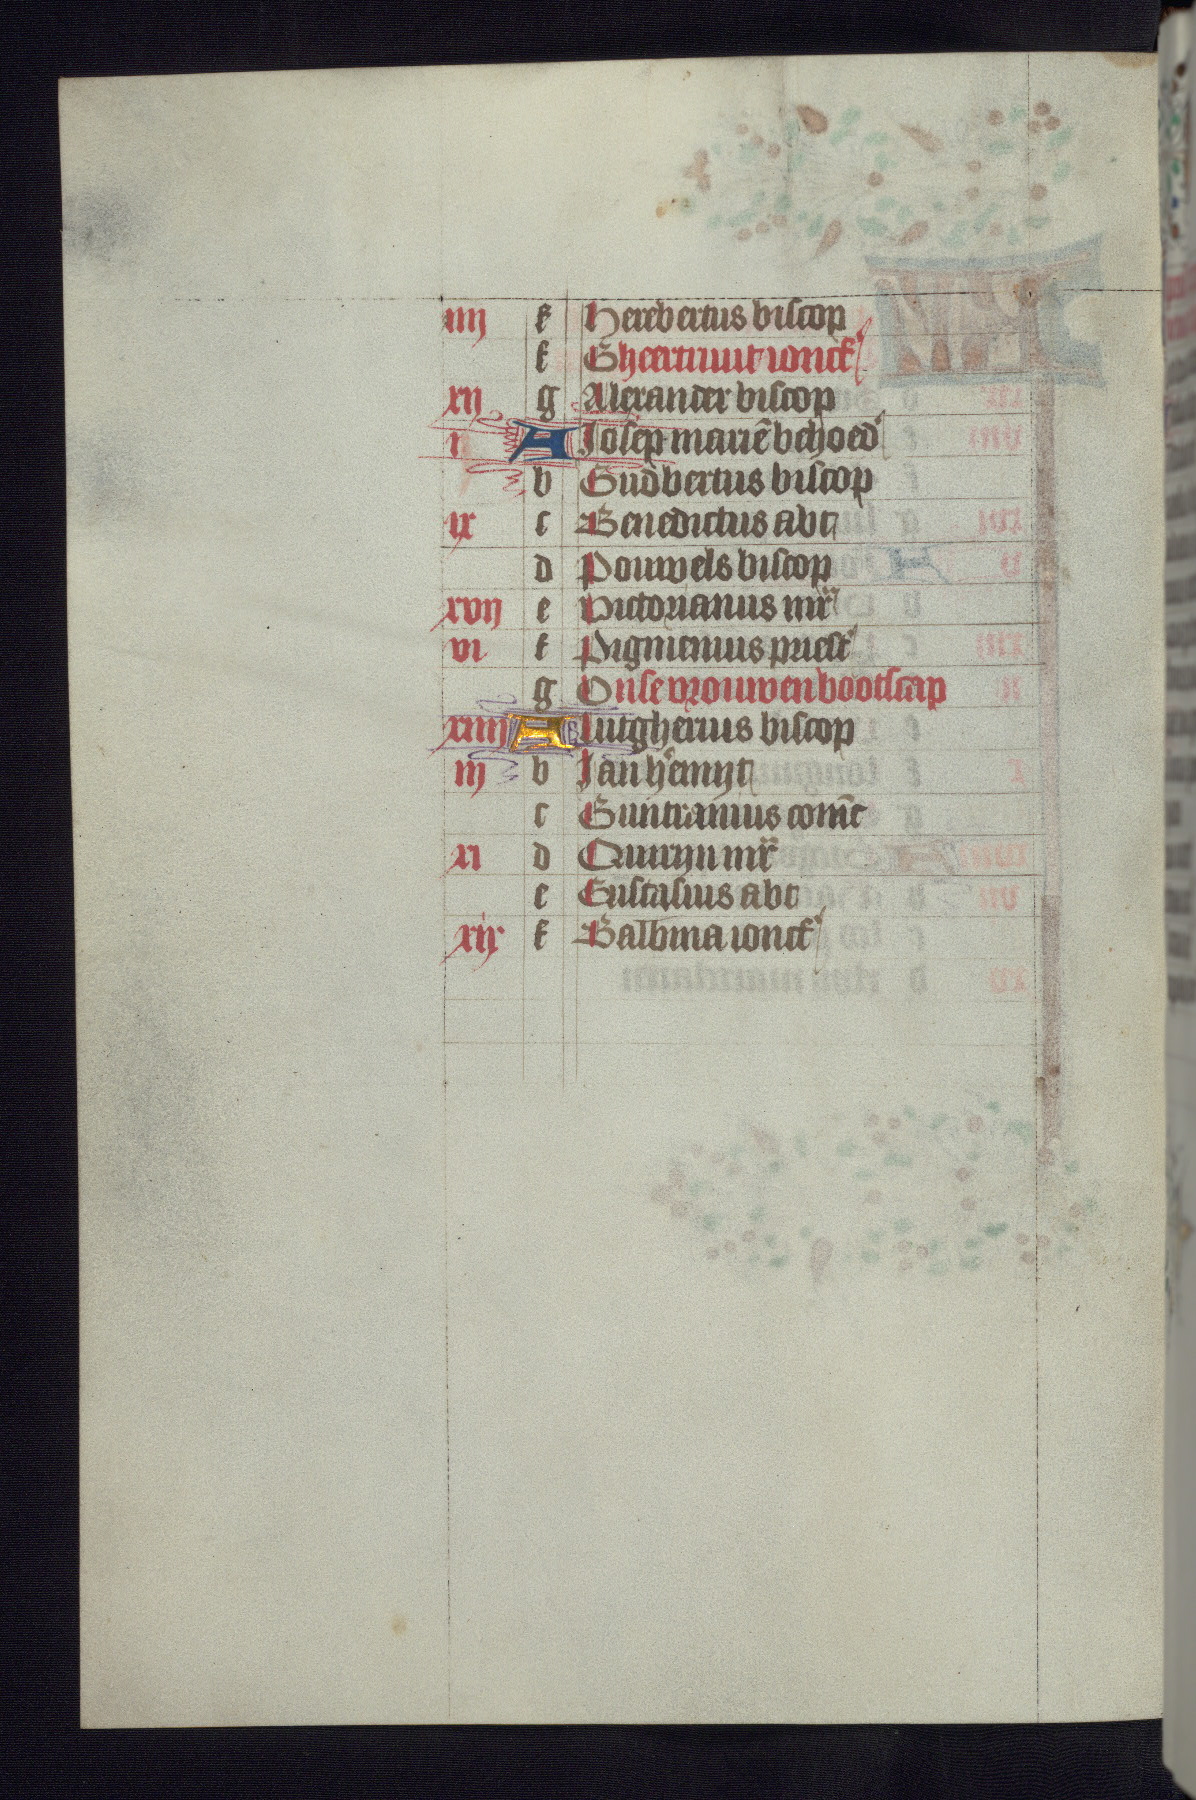 iiij e Herebertus biscop
f Gheertruut ionck
xij g Alexander biscop
i A Josep marie behoed
b Gudbertus biscop
ix c Benedictus abt
d Pouwels biscop
xvij e Victorianus mr
vi f Pigmenius priest
g Onse vrouwen bootscap
xiiij A Lutgherius biscop
iij b Jan hemijt
c Guntrannus con
xi d Quirijn mr
e Eustasius abt
xix f Balbina ionck